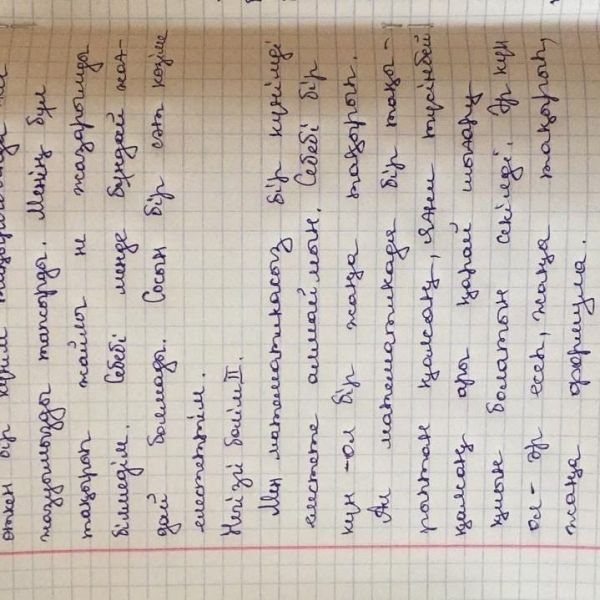 өткен бір күнім
жазуымызды тапсырды. Менің бұл
тақырып жайлы не жазарымды
білмедім. Себебі менде бұндай жағ-
дай болмады. Сосын бір сәт көзіме
елестеттім.
Негізгі бөлім II.
Мен математикасыз бір күнімді
елестете алмаймын. Себебі бір
күн - ол бір жаңа тақырып.
Ал математикада бір тақы-
рыптан қалсаң, яғни түсінбей
қалсаң ары қарай шығару
қиын болатын секілді. Әр күн
ол - әр есеп, жаңа тақырып,
жаңа формула.